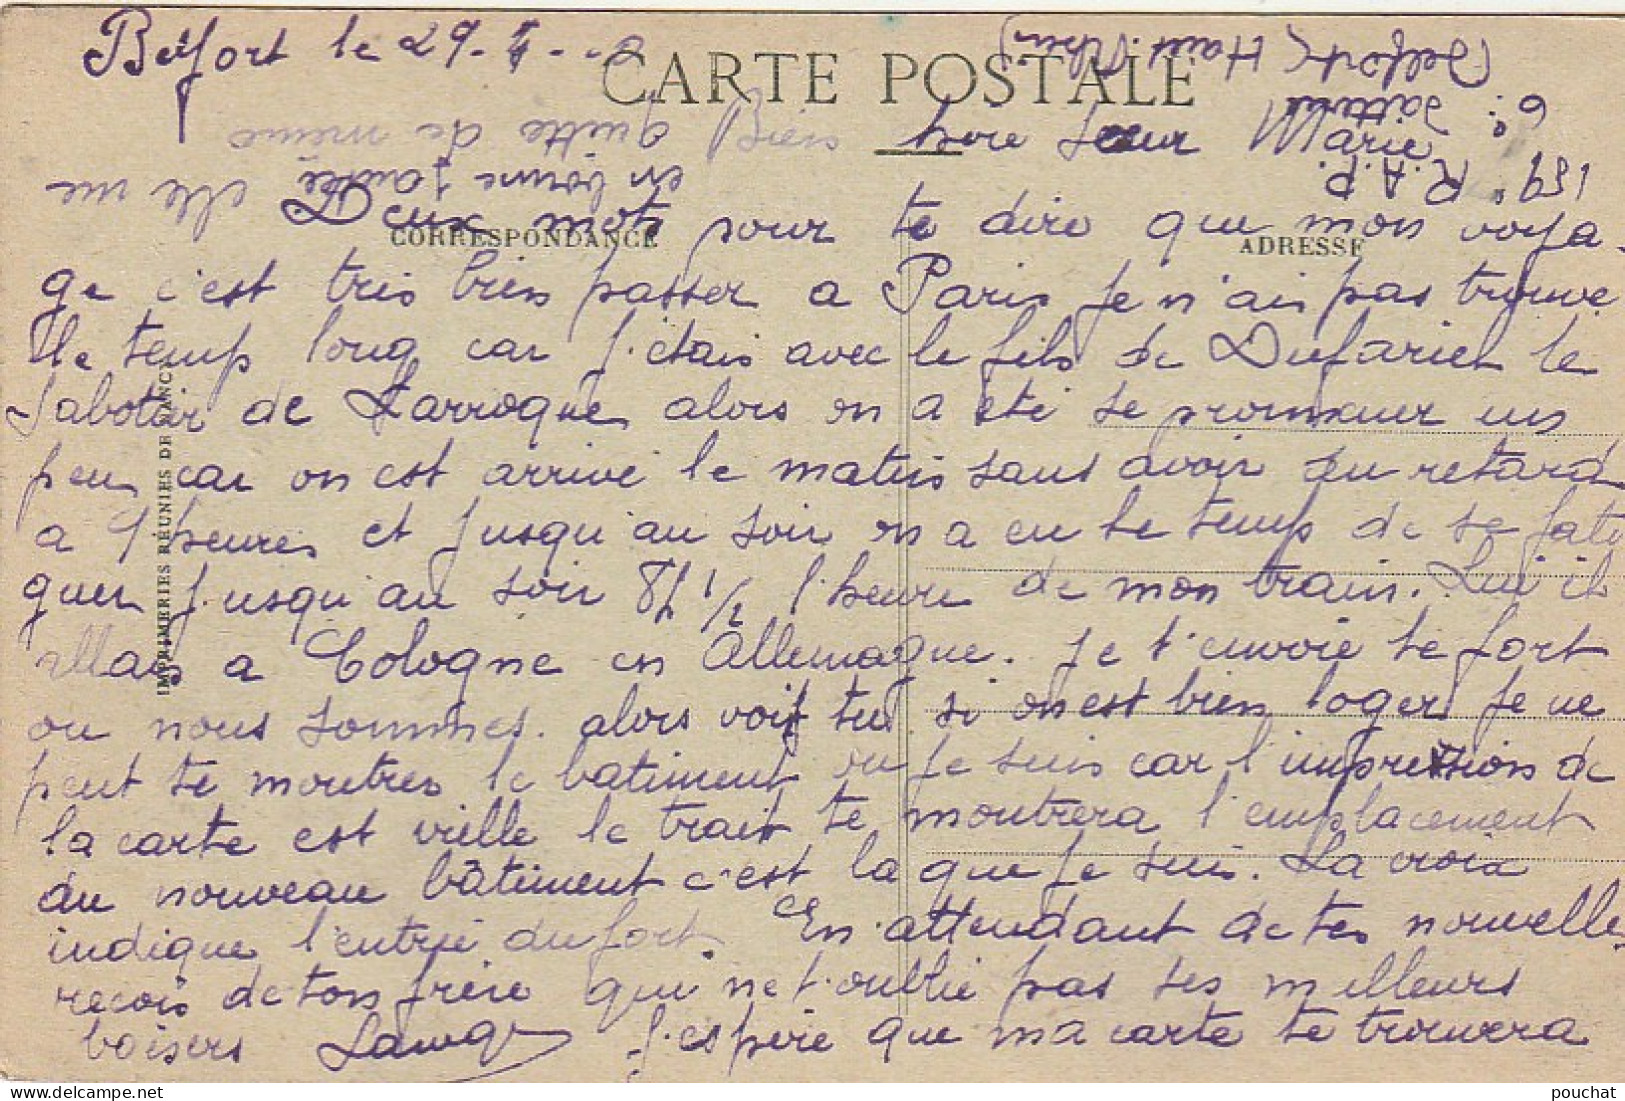 Belfort le 29-
CARTE POSTALE
Bien chere Sœur Marie
CORRESPONDANCE
ADRESSE
Deux mots pour te dire que mon voya-
ge c'est tres bien passer a Paris Je n'ais pas trouve
le temps long car j'etais avec le fils de Dufariet le
Sabotier de Larroque alors on a ete se promener un
peu car on est arrivé le matin sans avoir du retard
a 9 heures et jusqu'au soir on a eu le temps de se fati
guer jusqu'au soir 8h 1/2 l'heure de mon train. Lui il
allais a Cologne en Allemagne. Je t'envoie le fort
ou nous sommes. alors voit tu si on est bien loger Je ne
peut te montrer le batiment ou Je suis car l'impression de
la carte est vielle le trait te montrera l'emplacement
du nouveau bâtiment c'est la que Je suis. La croix
indique l'entrée du fort. En attendant de tes nouvelles
recois de ton frère qui ne t'oublie pas ses meilleurs
baisers J'espère que ma carte te trouvera
en bonne santée elle me
quitte de meme
159e R.A.P.
6e Batterie
Belfort (Haut Rhin)
IMPRIMERIES RÉUNIES DE NANCY
pouchat